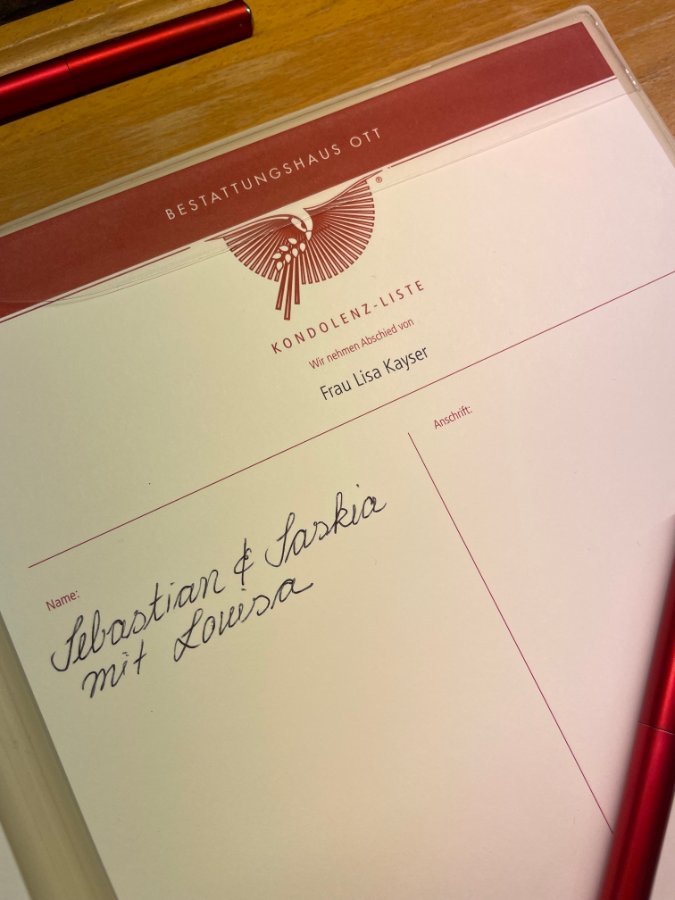 BESTATTUNGSHAUS OTT
®
KONDOLENZ-LISTE
Wir nehmen Abschied von
Frau Lisa Kayser
Anschrift:
Name:
Sebastian & Saskia
mit Louisa